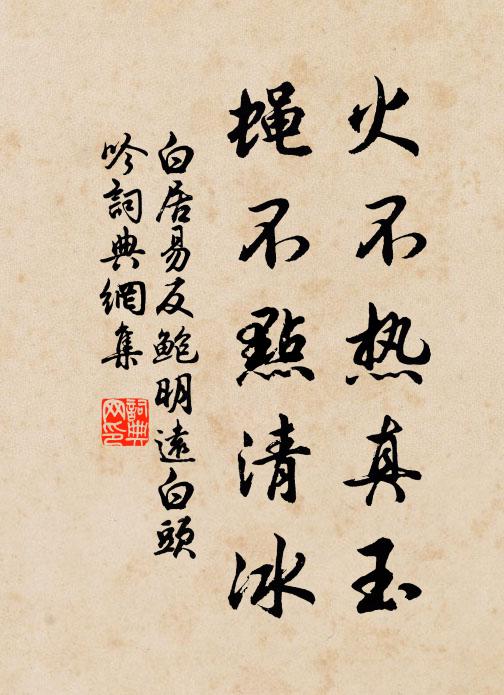 火不热真玉
蝇不點清冰
白居易反鮑明遠白頭
吟詞典網集
詞典
网印